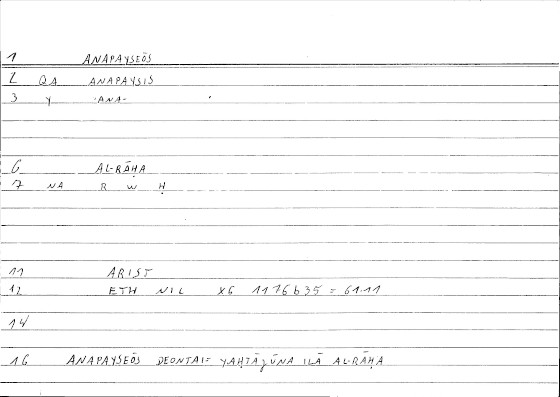 1 ANAPAYSEŌS
2 QA ANAPAYSIS
3 Y -ANA-
6 AL-RĀḤA
7 NA R W Ḥ
11 ARIST
12 ETH NIC X6 1176b35 = 61.11
14
16 ANAPAYSEŌS DEONTAI= YAḤTĀǧŪNA ILĀ AL-RĀḤA